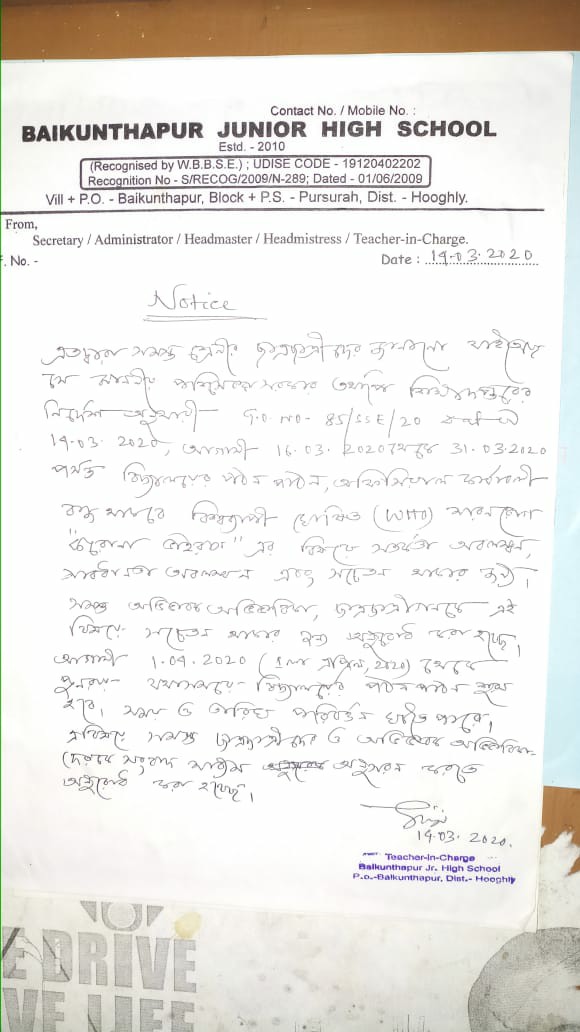 Contact No. / Mobile No. :
BAIKUNTHAPUR JUNIOR HIGH SCHOOL
Estd. - 2010
(Recognised by W.B.B.S.E.) ; UDISE CODE - 19120402202
Recognition No - S/RECOG/2009/N-289; Dated - 01/06/2009
Vill + P.O. - Baikunthapur, Block + P.S. - Pursurah, Dist. - Hooghly.
From,
Secretary / Administrator / Headmaster / Headmistress / Teacher-in-Charge.
. No. -
Date : 14.03.2020
Notice
এতদ্বারা সমস্ত শ্রেণীর ছাত্রছাত্রীদের জানানো যাইতেছে
যে মাননীয় পশ্চিমবঙ্গ সরকার শিক্ষাদপ্তরের
নির্দেশ অনুযায়ী G.O. NO- 85/SSE/20
14.03.2020, আগামী 16.03.2020 থেকে 31.03.2020
পর্যন্ত বিদ্যালয়ের পঠন পাঠন, অফিসিয়াল কার্যাবলী
বন্ধ থাকবে বিশ্বব্যাপী ঘোষিত (WHO) মারনরোগ
"করোনা ভাইরাস" এর বিষয়ে সতর্কতা অবলম্বন,
সাবধানতা অবলম্বন এবং সচেতন থাকার জন্য।
সমস্ত অভিভাবক অভিভাবিকা, ছাত্রছাত্রীগনকে এই
বিষয়ে সচেতন থাকার জন্য অনুরোধ করা হচ্ছে।
আগামী 1.04.2020 (1লা এপ্রিল, 2020) থেকে
পুনরায় যথাসময়ে বিদ্যালয়ের পঠনপাঠন শুরু
হবে। সময় ও তারিখ পরিবর্তন হতে পারে।
এবিষয়ে সমস্ত ছাত্রছাত্রীদের ও অভিভাবক অভিভাবিকা-
দেরকে সংবাদ মাধ্যম অনুসরন করতে
অনুরোধ করা হচ্ছে।
14.03.2020.
Teacher-In-Charge
Baikunthapur Jr. High School
P.o.-Baikunthapur, Dist.- Hooghly
E DRIVE
VE LIFE